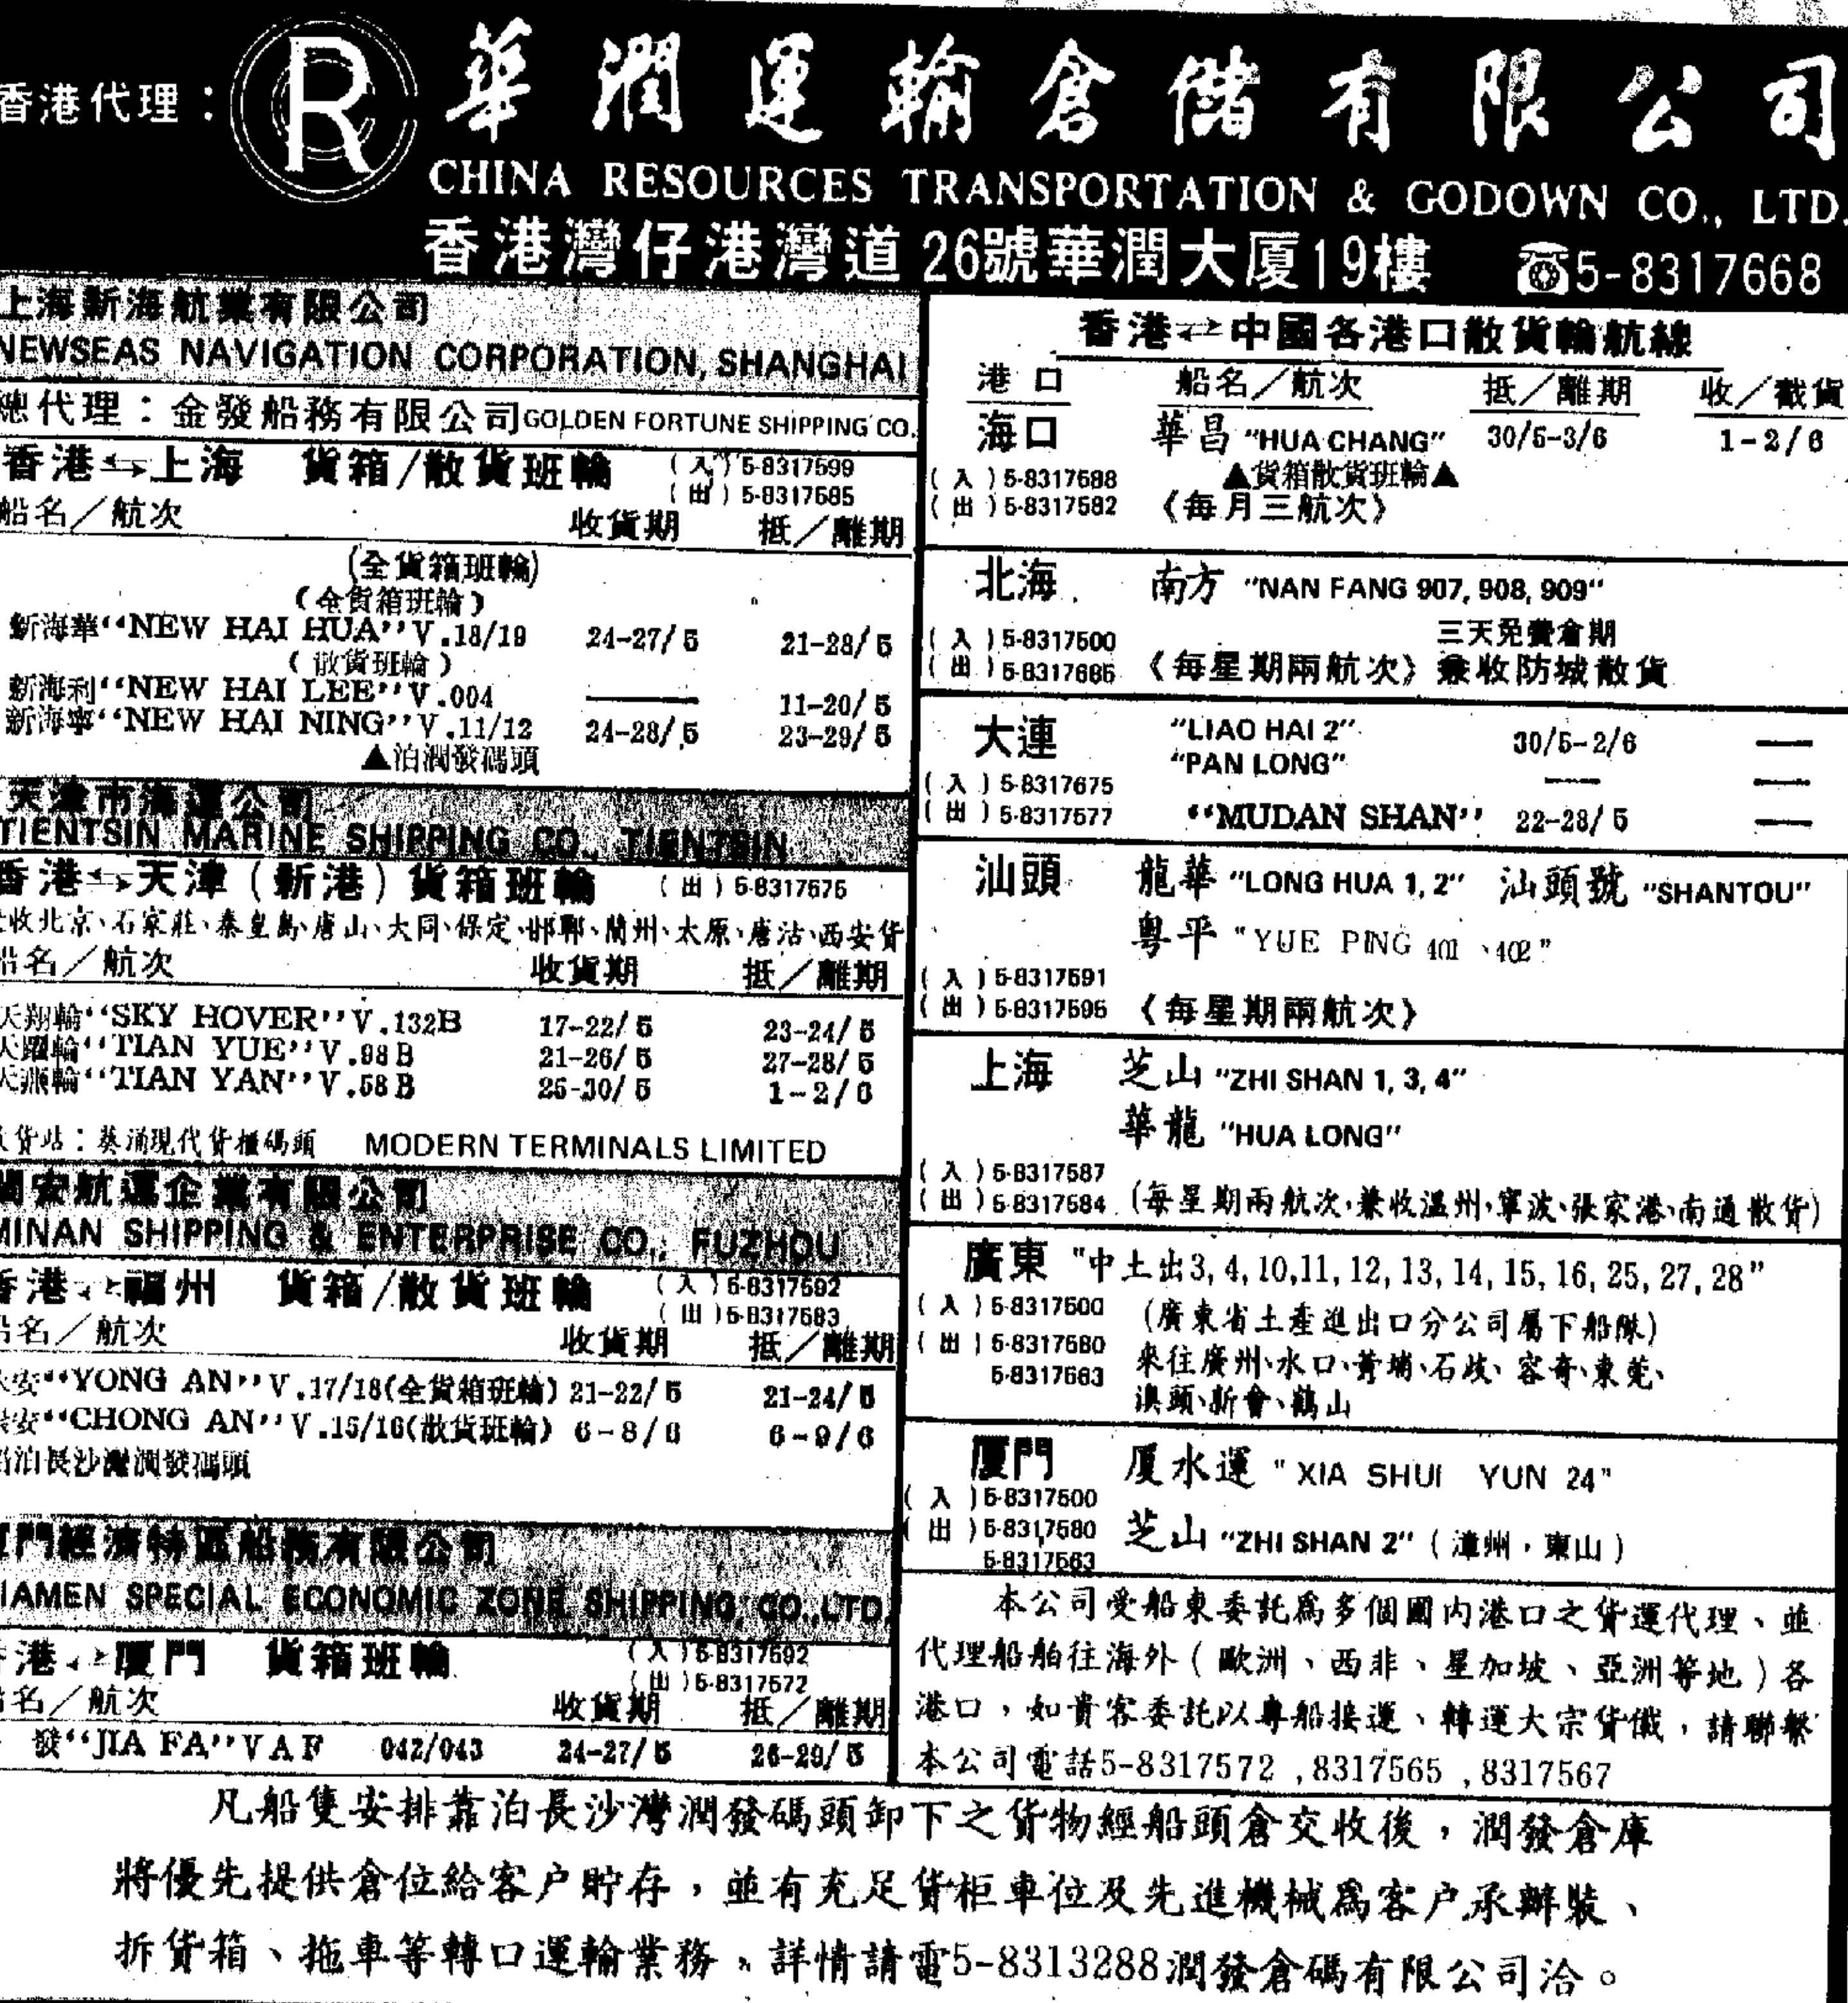 香港代理：
R
華潤運輸倉儲有限公司
CHINA RESOURCES TRANSPORTATION & GODOWN CO., LTD.
香港灣仔港灣道26號華潤大厦19樓 ☎5-8317668
上海新海航業有限公司
NEWSEAS NAVIGATION CORPORATION, SHANGHAI
總代理：金發船務有限公司GOLDEN FORTUNE SHIPPING CO.
香港⇆上海 貨箱/散貨班輪 （入）5-8317599
（出）5-8317585
船名／航次 收貨期 抵／離期
(全貨箱班輪)
（全貨箱班輪）
新海華“NEW HAI HUA”V.18/19 24-27/5 21-28/5
（散貨班輪）
新海利“NEW HAI LEE”V.004 —— 11-20/5
新海寧“NEW HAI NING”V.11/12 24-28/5 23-29/5
▲泊潤發碼頭
天津市海運公司
TIENTSIN MARINE SHIPPING CO., TIENTSIN
香港⇆天津（新港）貨箱班輪 （出）5-8317575
收北京、石家莊、秦皇島、唐山、大同、保定、邯鄲、蘭州、太原、唐沽、西安貨
船名／航次 收貨期 抵／離期
天翔輪“SKY HOVER”V.132B 17-22/5 23-24/5
天躍輪“TIAN YUE”V.98B 21-26/5 27-28/5
天燕輪“TIAN YAN”V.58B 25-30/5 1-2/6
收貨站：葵涌現代貨櫃碼頭 MODERN TERMINALS LIMITED
閩安航運企業有限公司
MINAN SHIPPING & ENTERPRISE CO., FUZHOU
香港⇄福州 貨箱/散貨班輪 （入）5-8317592
（出）5-8317583
船名／航次 收貨期 抵／離期
永安“YONG AN”V.17/18(全貨箱班輪) 21-22/5 21-24/5
崇安“CHONG AN”V.15/16(散貨班輪) 6-8/6 6-9/6
船泊長沙灣潤發碼頭
厦門經濟特區船務有限公司
XIAMEN SPECIAL ECONOMIC ZONE SHIPPING CO., LTD.
香港⇄厦門 貨箱班輪 （入）5-8317592
（出）5-8317572
船名／航次 收貨期 抵／離期
發“JIA FA”VAF 042/043 24-27/5 26-29/5
香港⇄中國各港口散貨輪航線
港口 船名／航次 抵／離期 收／截貨
海口 華昌 "HUA CHANG" 30/5-3/6 1-2/6
（入）5-8317588 ▲貨箱散貨班輪▲
（出）5-8317582 《每月三航次》
北海 南方 "NAN FANG 907, 908, 909"
（入）5-8317500 三天免費倉期
（出）5-8317585 《每星期兩航次》兼收防城散貨
大連 "LIAO HAI 2" 30/5-2/6 —
"PAN LONG" — —
（入）5-8317575
（出）5-8317577 “MUDAN SHAN” 22-28/5 —
汕頭 龍華 "LONG HUA 1, 2" 汕頭號 "SHANTOU"
粵平 "YUE PING 401、402"
（入）5-8317591
（出）5-8317595 《每星期兩航次》
上海 芝山 "ZHI SHAN 1, 3, 4"
華龍 "HUA LONG"
（入）5-8317587
（出）5-8317584 (每星期兩航次，兼收温州、寧波、張家港、南通散貨)
廣東 "中土出3, 4, 10,11, 12, 13, 14, 15, 16, 25, 27, 28"
（入）5-8317500 (廣東省土產進出口分公司屬下船隊)
（出）5-8317580 來往廣州、水口、黃埔、石岐、容奇、東莞、
5-8317563 澳頭、新會、鶴山
厦門 厦水運 "XIA SHUI YUN 24"
（入）5-8317500
（出）5-8317580 芝山 "ZHI SHAN 2"（漳州，東山）
5-8317563
本公司受船東委託爲多個國內港口之貨運代理、並
代理船舶往海外（歐洲、西非、星加坡、亞洲等地）各
港口，如貴客委託以專船接運、轉運大宗貨儎，請聯繫
本公司電話5-8317572 ,8317565 ,8317567
凡船隻安排靠泊長沙灣潤發碼頭卸下之貨物經船頭倉交收後，潤發倉庫
將優先提供倉位給客户貯存，並有充足貨柜車位及先進機械爲客户承辦裝、
拆貨箱、拖車等轉口運輸業務，詳情請電5-8313288潤發倉碼有限公司洽。